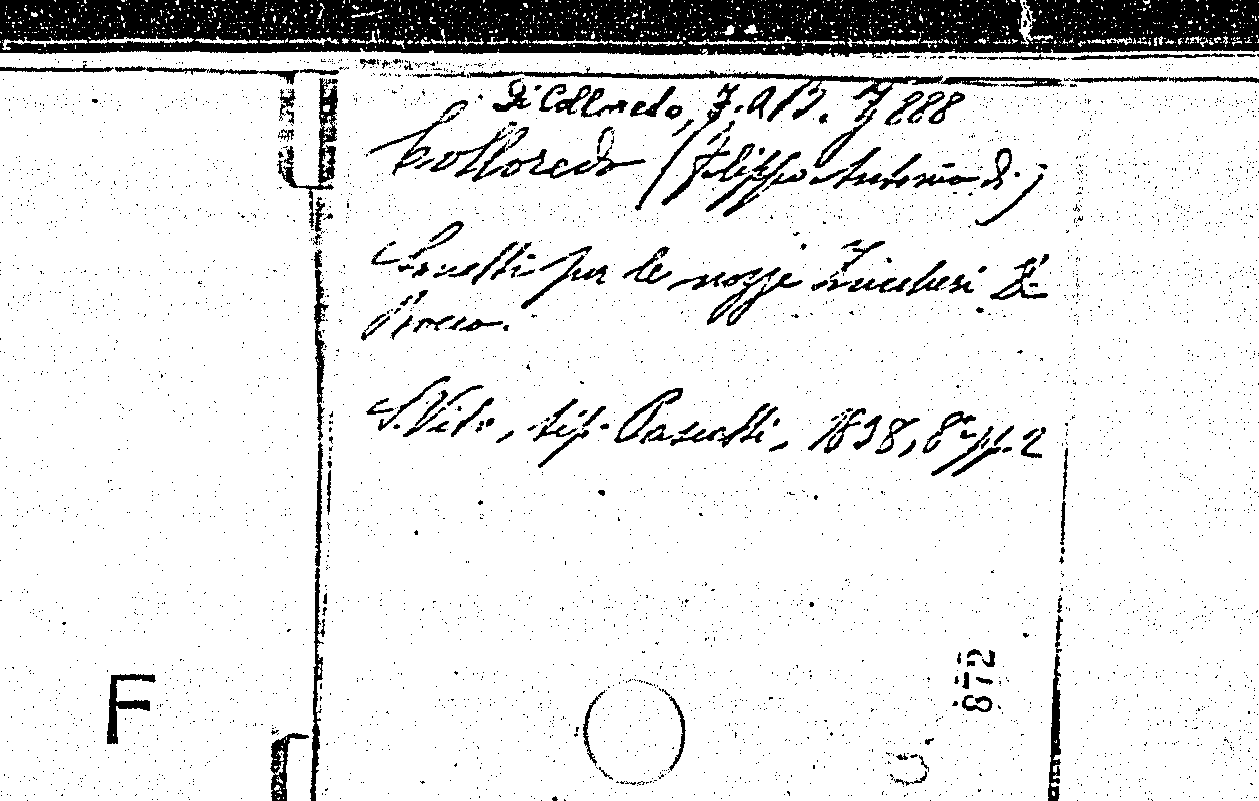 Di Colloredo, F. A/3. 888
Colloredo (Filippo Antonio di)
Sonetti per le nozze Zuccheri Di
Rocco.
S. Vito, tip. Pascatti, 1838, 8° pp. 2
872
F